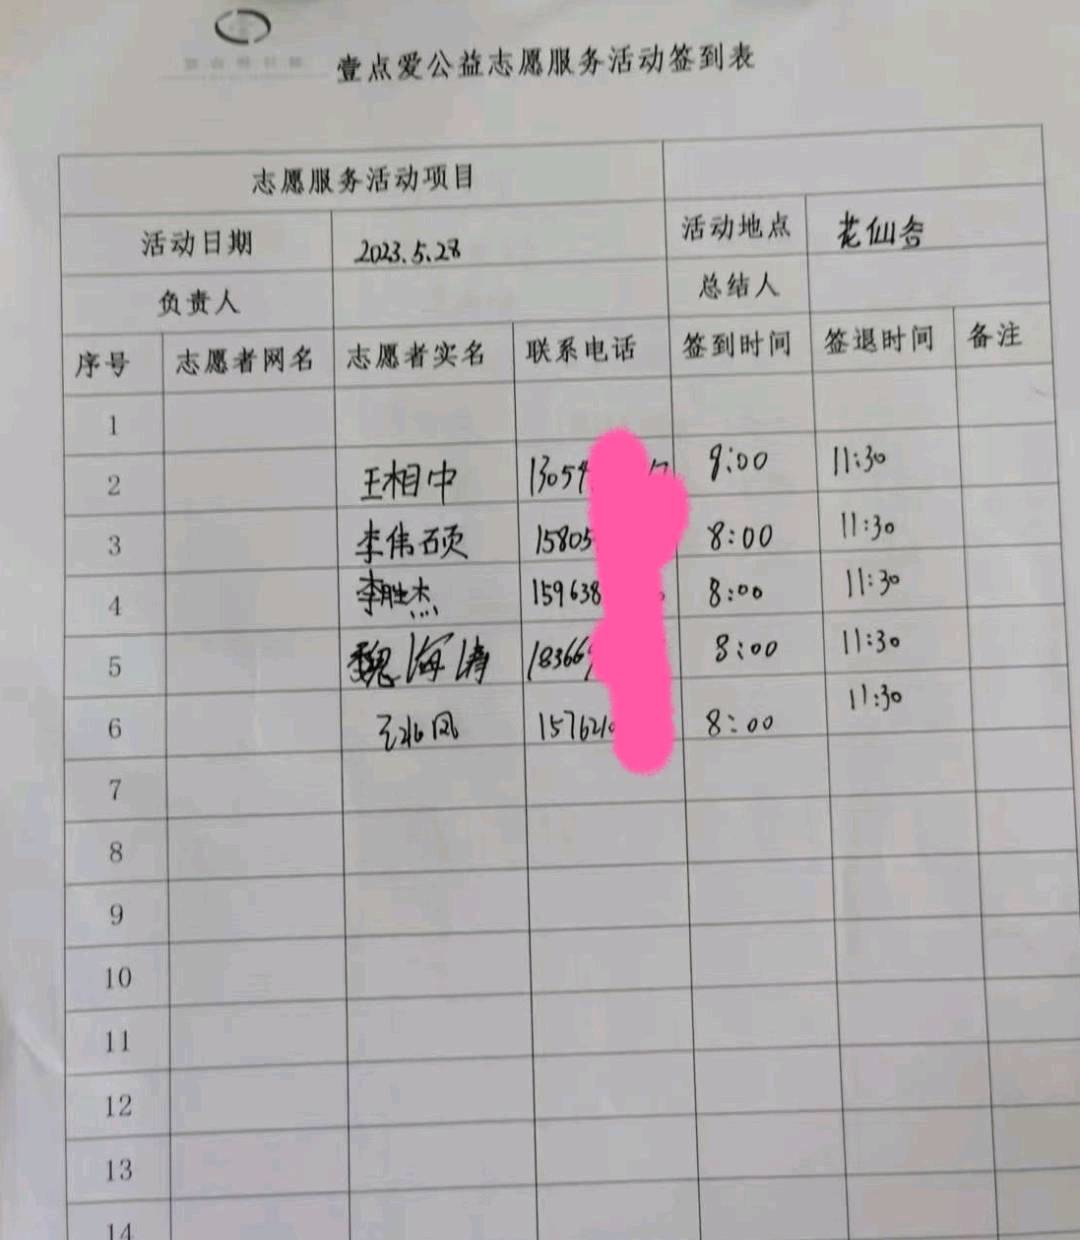 壹点爱公益志愿服务活动签到表
志愿服务活动项目
活动日期 2023.5.28 活动地点 老仙谷
负责人 总结人
序号 志愿者网名 志愿者实名 联系电话 签到时间 签退时间 备注
1
2 王相中 13054 17 8:00 11:30
3 李伟硕 15805 8:00 11:30
4 李胜杰 159638 8:00 11:30
5 魏海涛 18366 8:00 11:30
6 15762 8:00 11:30
7
8
9
10
11
12
13
14